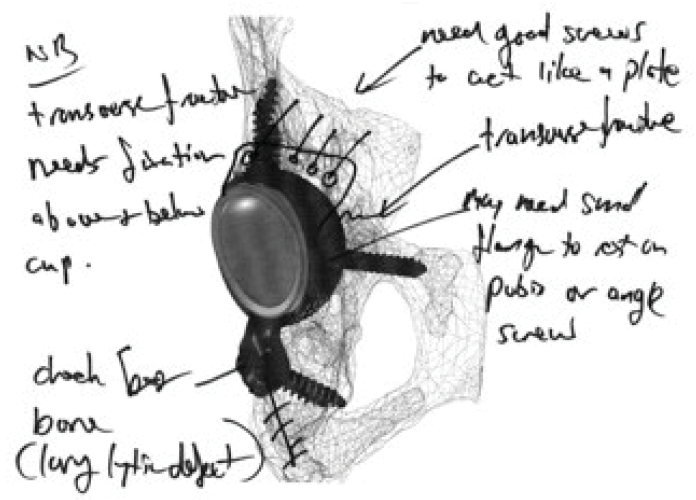 NB
transverse fracture
needs fixation
above + below
cup.
need good screws
to act like a plate
transverse fracture
may need small
flange to rest on
pubis or angle
screw
check
bone
(large lytic defect)